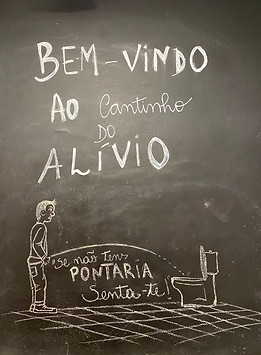 BEM-VINDO
AO Cantinho
DO
ALÍVIO
"se não tens
PONTARIA
Senta-te!